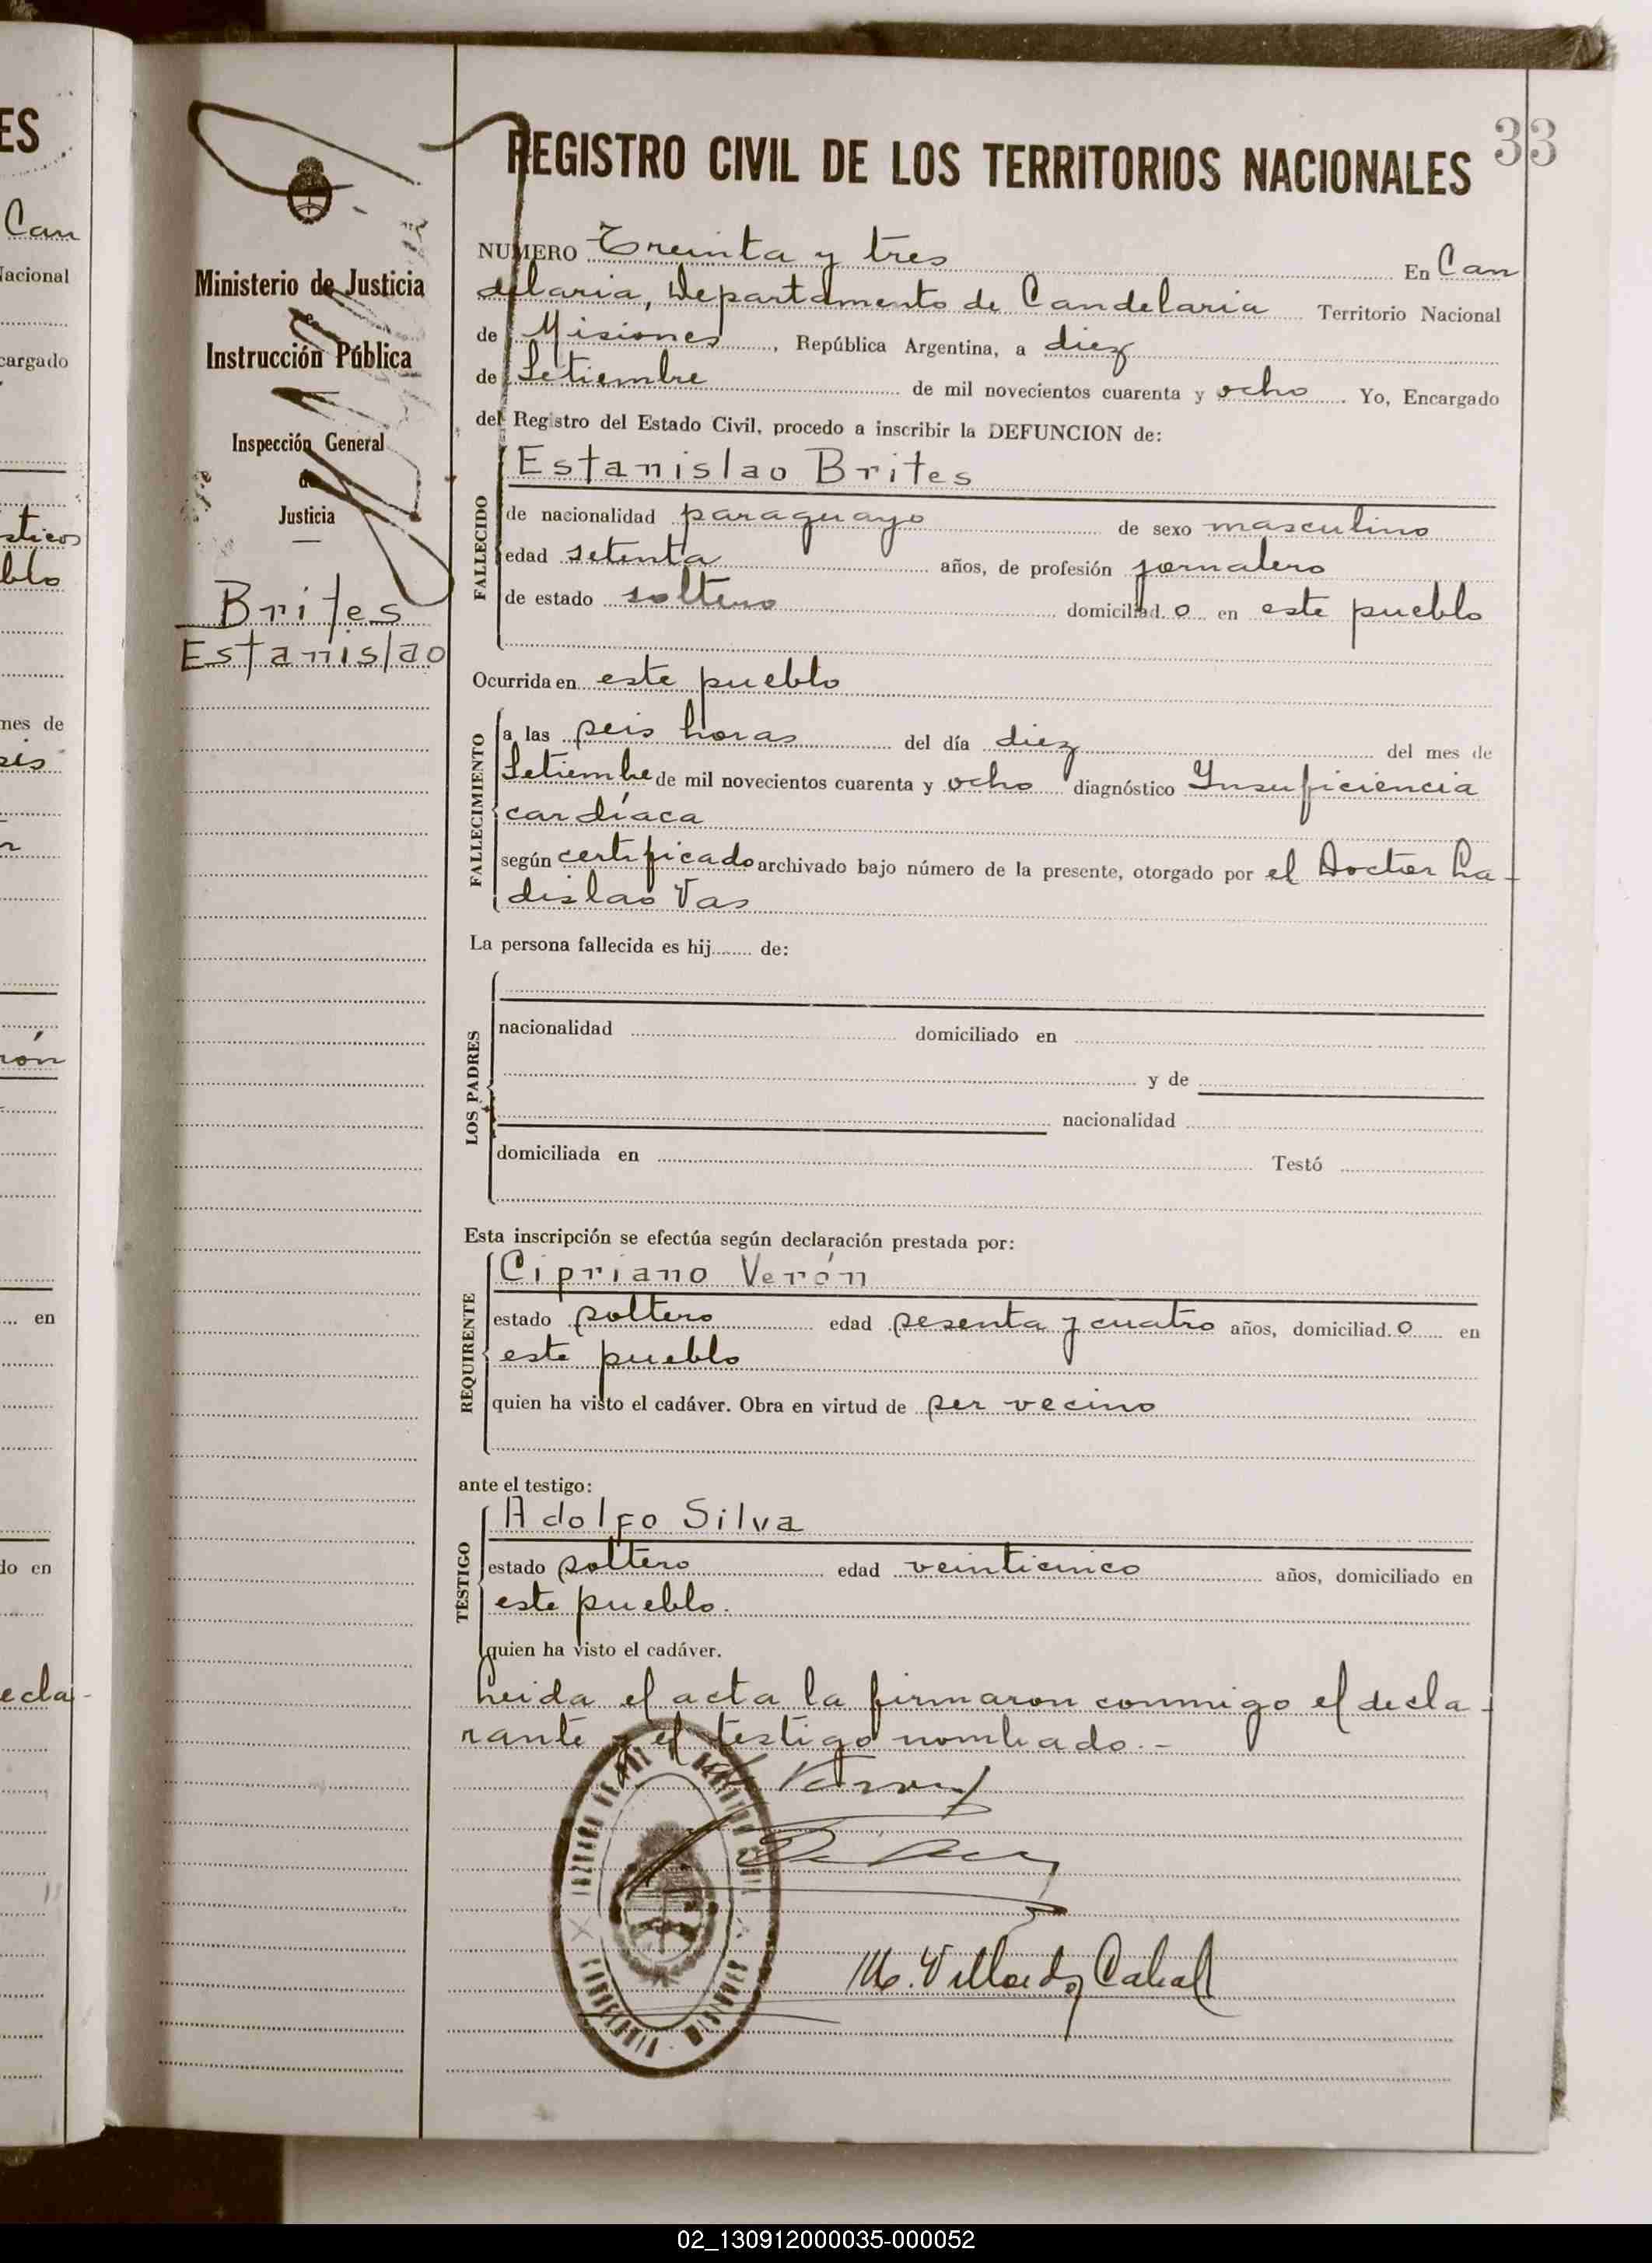 33
REGISTRO CIVIL DE LOS TERRITORIOS NACIONALES
Ministerio de Justicia
e
Instrucción Pública
Inspección General
de
Justicia
Brites
Estanislao
NUMERO Treinta y tres En Can
delaria, Departamento de Candelaria Territorio Nacional
de Misiones, República Argentina, a diez
de Setiembre de mil novecientos cuarenta y ocho. Yo, Encargado
del Registro del Estado Civil, procedo a inscribir la DEFUNCION de:
FALLECIDO
Estanislao Brites
de nacionalidad paraguayo de sexo masculino
edad setenta años, de profesión jornalero
de estado soltero domiciliad o en este pueblo
Ocurrida en este pueblo
FALLECIMIENTO
a las seis horas del día diez del mes de
Setiembre de mil novecientos cuarenta y ocho diagnóstico Insuficiencia
cardíaca
según certificado archivado bajo número de la presente, otorgado por el Doctor La-
dislao Vas
La persona fallecida es hij........ de:
LOS PADRES
nacionalidad domiciliado en
y de
nacionalidad
domiciliada en Testó
Esta inscripción se efectúa según declaración prestada por:
REQUIRENTE
Cipriano Verón
estado soltero edad sesenta y cuatro años, domiciliad o en
este pueblo
quien ha visto el cadáver. Obra en virtud de ser vecino
ante el testigo:
TESTIGO
Adolfo Silva
estado soltero edad veinticinco años, domiciliado en
este pueblo.
quien ha visto el cadáver.
Leida el acta la firmaron conmigo el decla-
rante y el testigo nombrado.-
JUZGADO DE PAZ
CANDELARIA MISIONES
02_130912000035-000052
ES
Can
Nacional
cargado
sticos
blo
mes de
rón
en
do en
ecla-